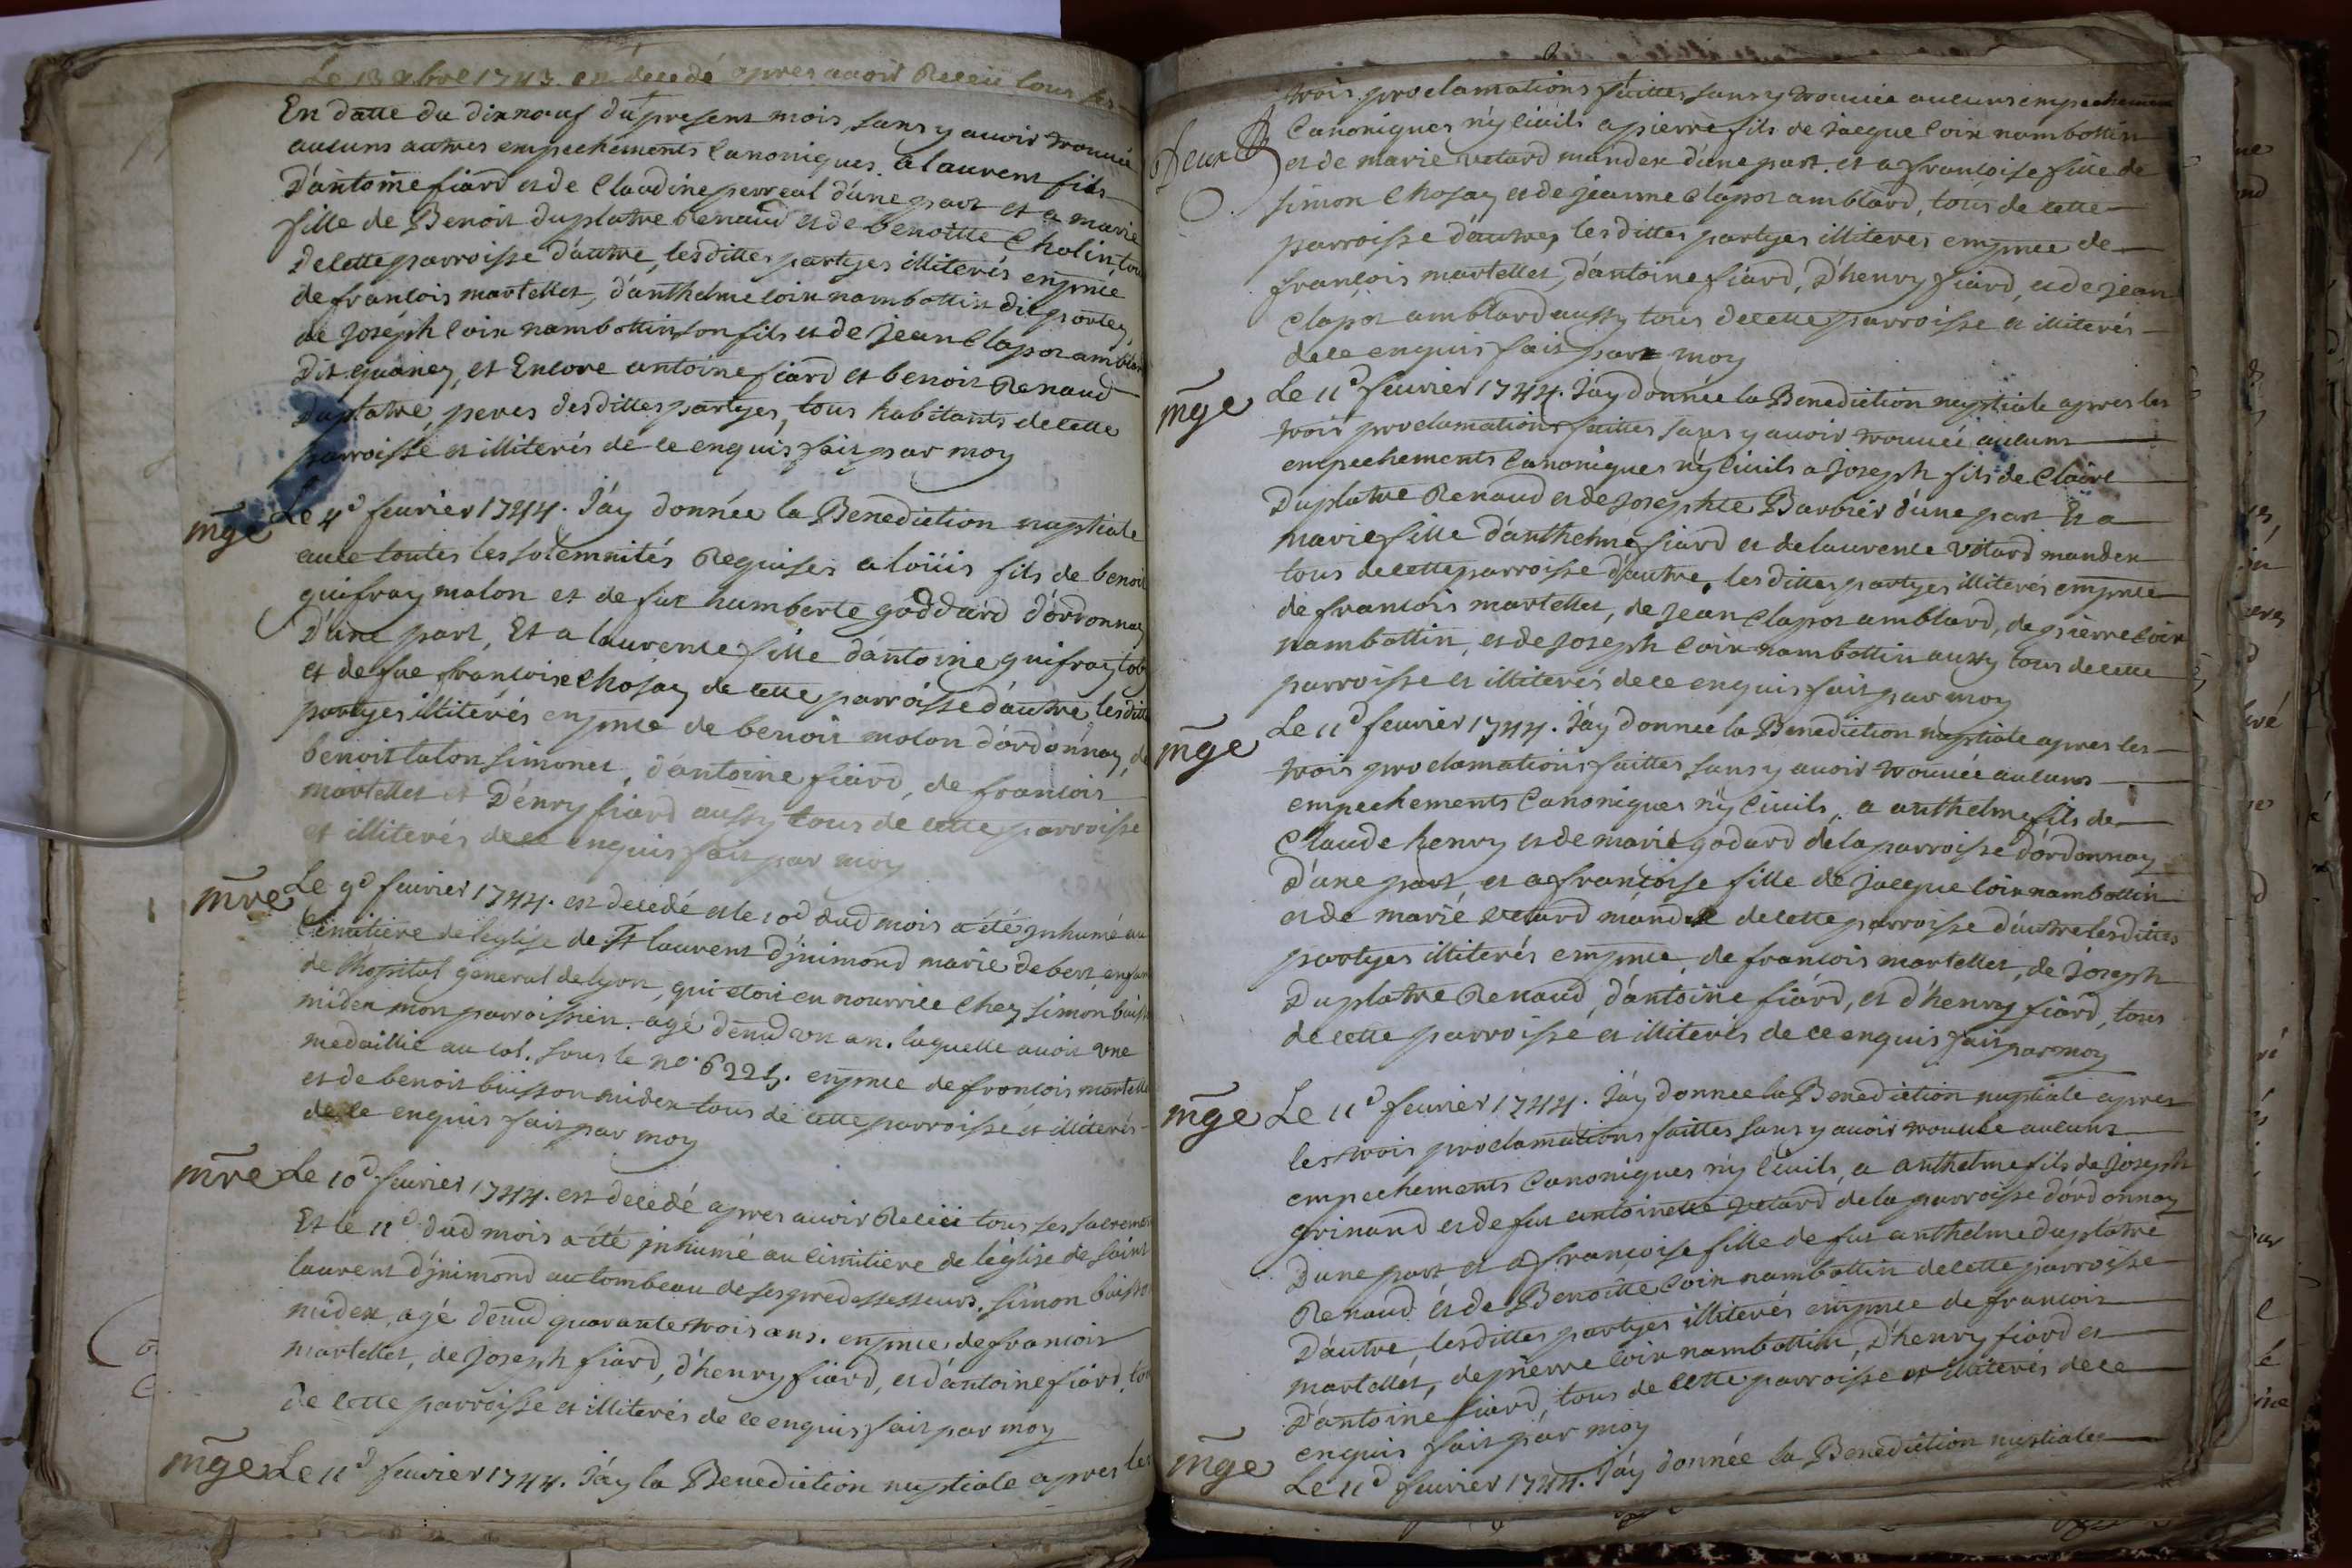 Le 13 xbre 1743. est decedé apres avoir Receu tous ses
En datte du dix neuf du present mois sans y auoir trouuée
aucuns autres empechements Canoniques. a laurent fils
D'antoine fiard et de Claudine perreal d'une part et a marie
fille de Benoit duplatre Renaud et de benoitte Cholin, tous
de cette parroisse d'autre, lesdittes partyes illiterés enp̄nce
de francois martellet, d'anthelme coin nambottin dit portey,
de Joseph Coin nambottin son fils et de Jean Clapot amblard
Dit guaney, et Encore antoine fiard et benoit Renaud
Duplatre, peres desdittes partyes, tous habitants de cette
parroisse et illiterés de ce enquis fait par moy
mḡe Le 4e feurier 1744. J'ay donnée la Benediction nuptiale
auec toutes les solemnités Requises a loüis fils de benoit
guifray molon et de fue humberte goddard d'ordonnay
D'une part, Et a laurence fille d'antoine guifray
et de fue francoise Chosay de cette parroisse d'autre, lesdittes
partyes illiterés enp̄nce de benoit molon d'ordonnay, de
benoit talon simonet, d'antoine fiard, de francois
martellet et D'enry fiard aussy tous de cette parroisse
et illiterés de ce enquis fait par moy
m̄re Le 9d feurier 1744. est decedé et le 10d dud mois a été inhumé au
Cimitiere de l'eglise de St laurent d'jnimond marie debert, enfant
de l'hopital general de lyon, qui etoit en nourrice Chez simon buisson
midex mon parroissien. agé denud un an. laquelle auoit vne
medaillie au col. sous le no. 6225. enp̄nce de francois martellet
et de benoit buisson midex tous de cette parroisse et illiterés
de ce enquis fait par moy
m̄re Le 10d feurier 1744. est decedé apres auoir Receü tous ses sacrements
Et le 11d dud mois a été jnhumé au Cimitiere de l'eglise de saint
laurent d'jnimond au tombeau de ses predessesseurs. simon buisson
midex, agé denud quarante trois ans. enp̄nce de francois
martellet, de Joseph fiard, d'henry fiard, et d'antoine fiard, tous
de cette parroisse et illiterés de ce enquis fait par moy
mḡe Le 11d feurier 1744. J'ay la Benediction nuptiale apres les
trois proclamations faittes sans y trouuée aucuns empechements
Canoniques n'y Ciuils a pierre fils de Jacque Coin nambottin
et de marie vetard mandex d'une part. et a francoise fille de
simon Chosay et de jeanne Clapot amblard, tous de cette
parroisse d'autre, lesdittes partyes illiterés enp̄nce de
francois martellet, d'antoine fiard, D'henry fiard, et de jean
Clapot amblard aussy tous de cette parroisse et illiterés
de ce enquis fait par moy
mḡe Le 11d feurier 1744. J'ay donnée la Benediction nuptiale apres les
trois proclamations faittes sans y auoir trouuée aucuns
empechements Canoniques n'y Ciuils a Joseph fils de Claire
Duplatre Renaud et de Josephte Barbier d'une part Et a
marie fille d'anthelme fiard et de laurence vetard mandex
tous de cette parroisse d'autre, lesdittes partyes illiterés enp̄nce
de francois martellet, de jean Clapot amblard, de pierre Coin
nambottin, et de Joseph Coin nambottin aussy tous de cette
parroisse et illiterés de ce enquis fait par moy
mḡe Le 11d feurier 1744. J'ay donnee la Benediction nuptiale apres les
trois proclamations faittes sans y auoir trouuée aucuns
empechements Canoniques n'y Ciuils, a anthelme fils de
Claude henry et de marie godard de la parroisse d'ordonnay
D'une part, et a francoise fille de Jacque Coin nambottin
et de marie vetard mandex de cette parroisse d'autre lesdittes
partyes illiterés enp̄nce, de francois martellet, de Joseph
Duplatre Renaud, d'antoine fiard, et d'henry fiard, tous
de cette parroisse et illiterés de ce enquis fait par moy
mḡe Le 11d feurier 1744. J'ay donnee la Benediction nuptiale apres
les trois proclamations faittes sans y auoir trouuée aucuns
empechements Canoniques n'y Ciuils, a anthelme fils de Joseph
grinand et de fue antoinette vetard de la parroisse d'ordonnay
D'une part et a francoise fille de fut anthelme duplatre
Renaud et de Benoitte Coin nambottin de cette parroisse
D'autre, lesdittes partyes illiterés enp̄nce de francois
martellet, de pierre Coin nambottin, D'henry fiard et
D'antoine fiard, tous de cette parroisse et illiterés de ce
enquis fait par moy
mḡe Le 11d feurier 1744. J'ay donnée la Benediction nuptiale